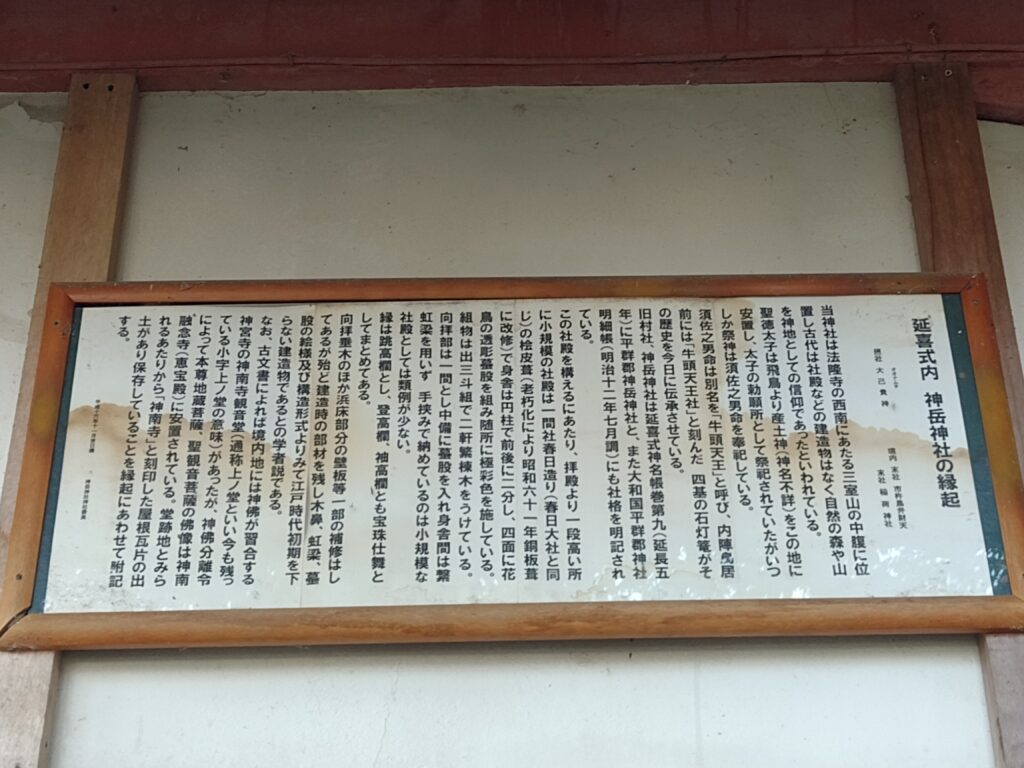 延喜式内 神岳神社の縁起
境内 末社 市杵島弁財天
末社 稲荷神社
摂社 大己貴神
当神社は法隆寺の西南にあたる三室山の中腹に位
置し古代は社殿などの建造物はなく自然の森や山
を神地としての信仰であったといわれている。
聖徳太子は飛鳥より産土神(神名不詳)をこの地に
安置し、太子の勅願所として祭祀されていたがいつ
しか祭神は須佐之男命を奉祀している。
須佐之男命は別名を「牛頭天王」と呼び、内陣鳥居
前には「牛頭天王社」と刻んだ 四基の石灯篭がそ
の歴史を今日に伝承させている。
旧村社、神岳神社は延喜式神名帳巻第九(延長五
年)に平群郡神岳神社と、また大和国平群郡神社
明細帳(明治十二年七月調)にも社格を明記され
ている。
この社殿を構えるにあたり、拝殿より一段高い所
に小規模の社殿は一間社春日造り(春日大社と同
じ)の桧皮葺(老朽化により昭和六十一年銅板葺
に改修)で身舎は円柱で前後に二分し、四面に花
鳥の透彫蟇股を組み随所に極彩色を施している。
組物は出三斗組で二軒繁棟木をうけている。
向拝部は一間とし中備に蟇股を入れ身舎間は繋
虹梁を用いず 手挟みで納めているのは小規模な
社殿としては類例が少ない。
縁は跳高欄とし、登高欄、袖高欄とも宝珠仕舞と
してまとめてある。
向拝垂木のほか浜床部分の壁板等一部の補修はし
てあるが殆ど建造時の部材を残し木鼻、虹梁、蟇
股の絵様及び構造形式よりみて江戸時代初期を下
らない建造物であるとの学者説である。
なお、古文書によれば境内地には神佛が習合する
神宮寺の神南寺観音堂(通称上ノ堂といい今も残っ
ている小字上ノ堂の意味)があったが、神佛分離令
によって本尊地蔵菩薩、聖観音菩薩の佛像は神南
融念寺(恵宝殿)に安置されている。堂跡地とみら
れるあたりから「神南寺」と刻印した屋根瓦片の出
土があり保存していることを縁起にあわせて附記
する。